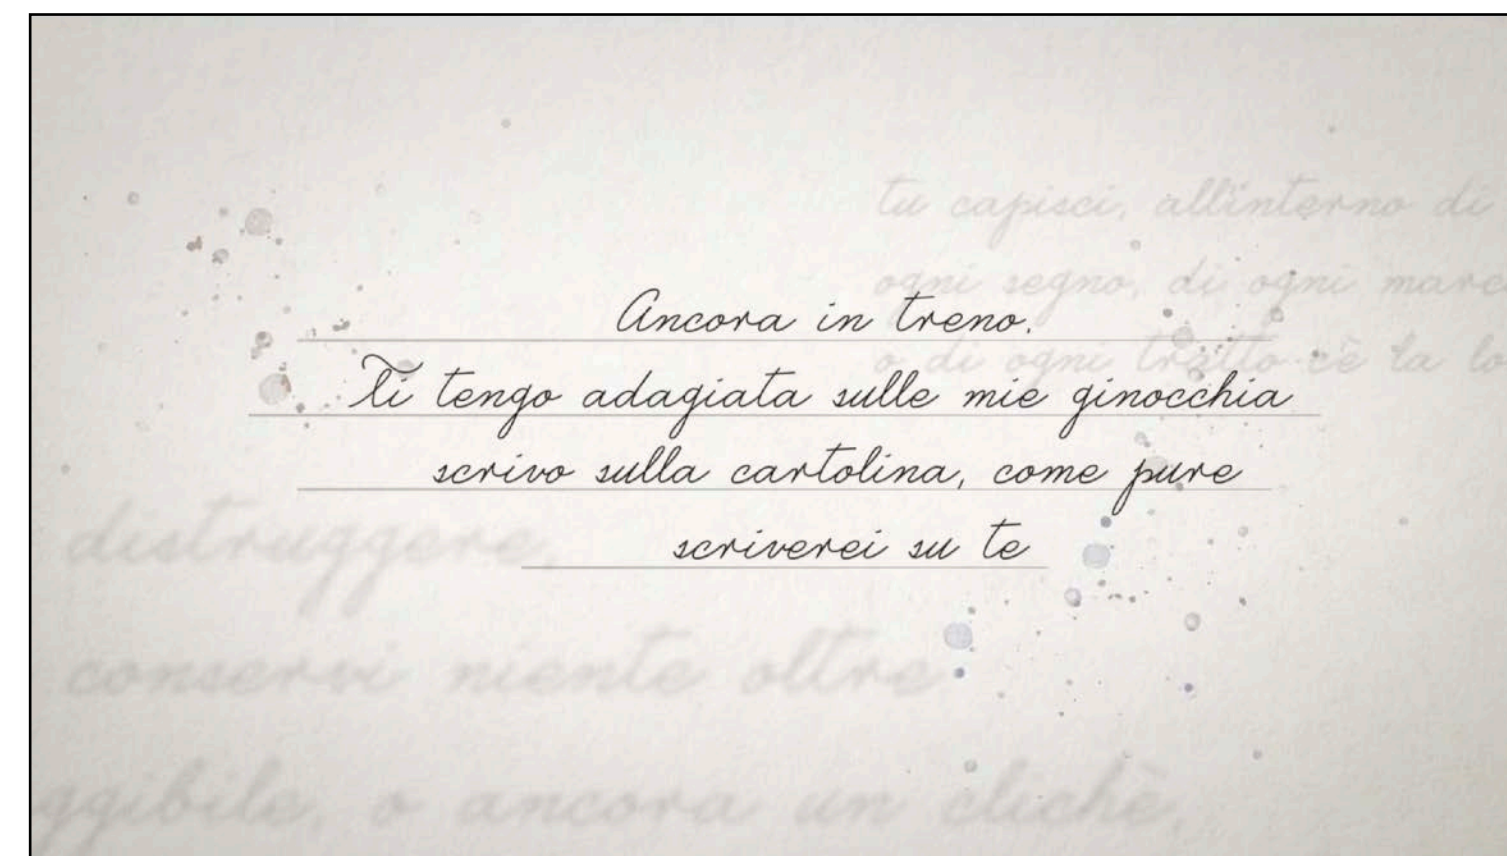 tu capisci, all'interno di
ogni segno, di ogni marc
o di ogni tratto c'è la lo
Ancora in treno.
Ti tengo adagiata sulle mie ginocchia
scrivo sulla cartolina, come pure
scriverei su te
distruggere,
conservi niente oltre
ggibile, o ancora un clichè,